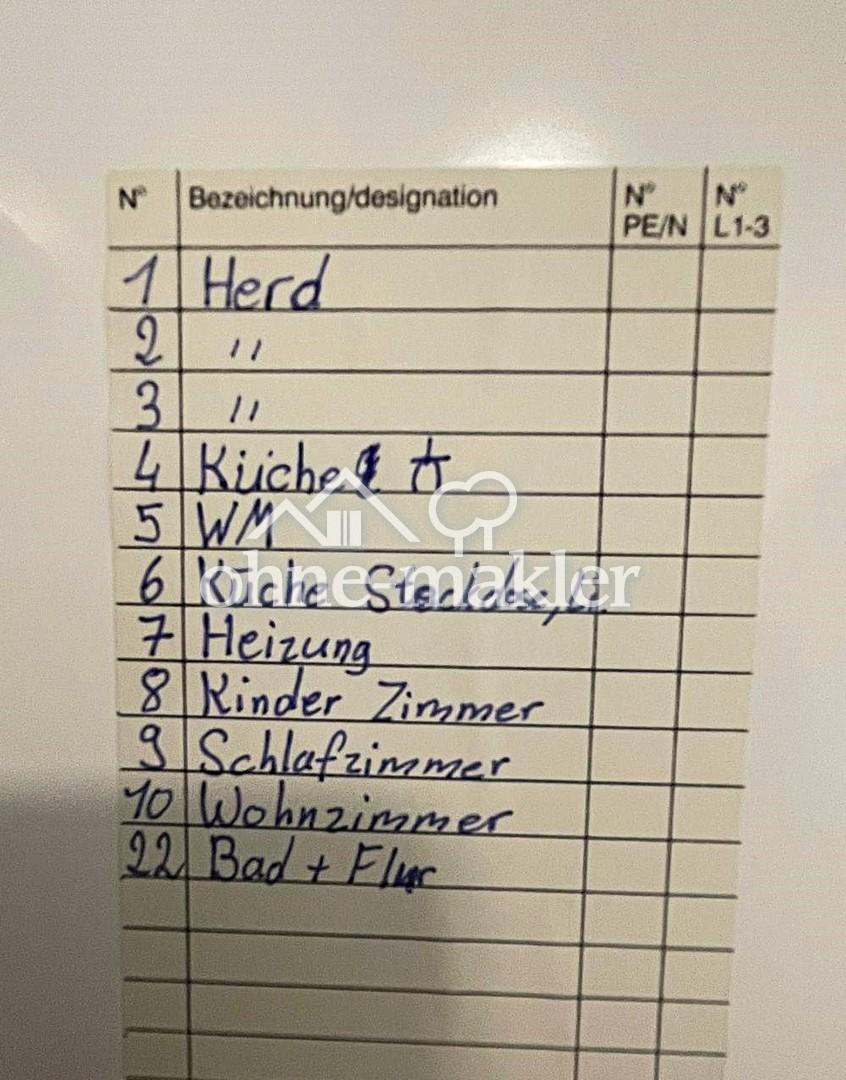 N° Bezeichnung/designation N° PE/N N° L1-3
1 Herd
2 "
3 "
4 Küche
5 WM
6 Küche Steckdose,
7 Heizung
8 Kinder Zimmer
9 Schlafzimmer
10 Wohnzimmer
22 Bad + Flur
ohne-makler